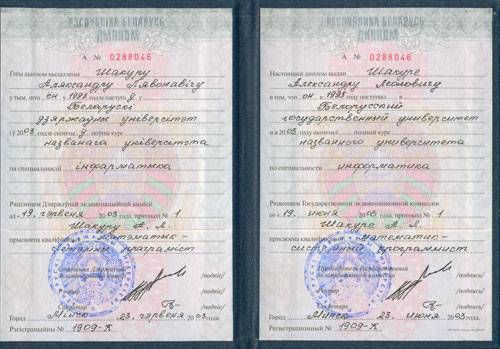 РЭСПУБЛІКА БЕЛАРУСЬ
ДЫПЛОМ
А № 0288046
Гэты дыплом выдадзены Шакуру
Аляксандру Лявонавічу
у тым, што ён у 1998 годзе паступіў у
Беларускі
дзяржаўны ўніверсітэт
і ў 2003 годзе скончыў поўны курс
названага ўніверсітэта
па спецыяльнасці інфарматыка
Рашэннем Дзяржаўнай экзаменацыйнай камісіі
ад 19 чэрвеня 2003 года, пратакол № 1
Шакуру А. Л.
прысвоена кваліфікацыя матэматык-
сістэмны праграміст
Старшыня Дзяржаўнай
экзаменацыйнай камісіі /подпіс/
/подпіс/
Сакратар /подпіс/
Горад Мінск 23 чэрвеня 2003 г.
Рэгістрацыйны № 1909-Ж
РЕСПУБЛИКА БЕЛАРУСЬ
ДИПЛОМ
А № 0288046
Настоящий диплом выдан Шакуре
Александру Леоновичу
в том, что он в 1998 году поступил в
Белорусский
государственный университет
и в 2003 году окончил полный курс
названного университета
по специальности информатика
Решением Государственной экзаменационной комиссии
от 19 июня 2003 года, протокол № 1
Шакуре А. Л.
присвоена квалификация математик-
системный программист
Председатель Государственной
экзаменационной комиссии /подпись/
/подпись/
Секретарь /подпись/
Город Минск 23 июня 2003 г.
Регистрационный № 1909-Ж